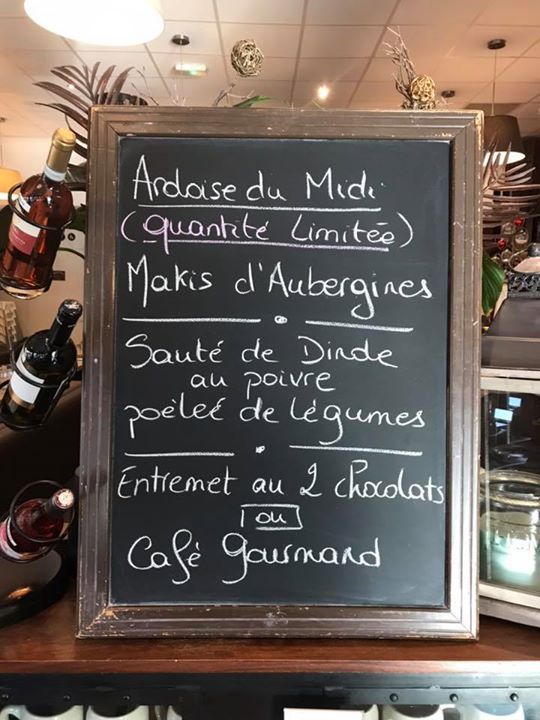 Ardoise du Midi
(quantité Limitée)
Makis d'Aubergines
Sauté de Dinde
au poivre
poèleé de légumes
Entremet au 2 chocolats
ou
Café gourmand